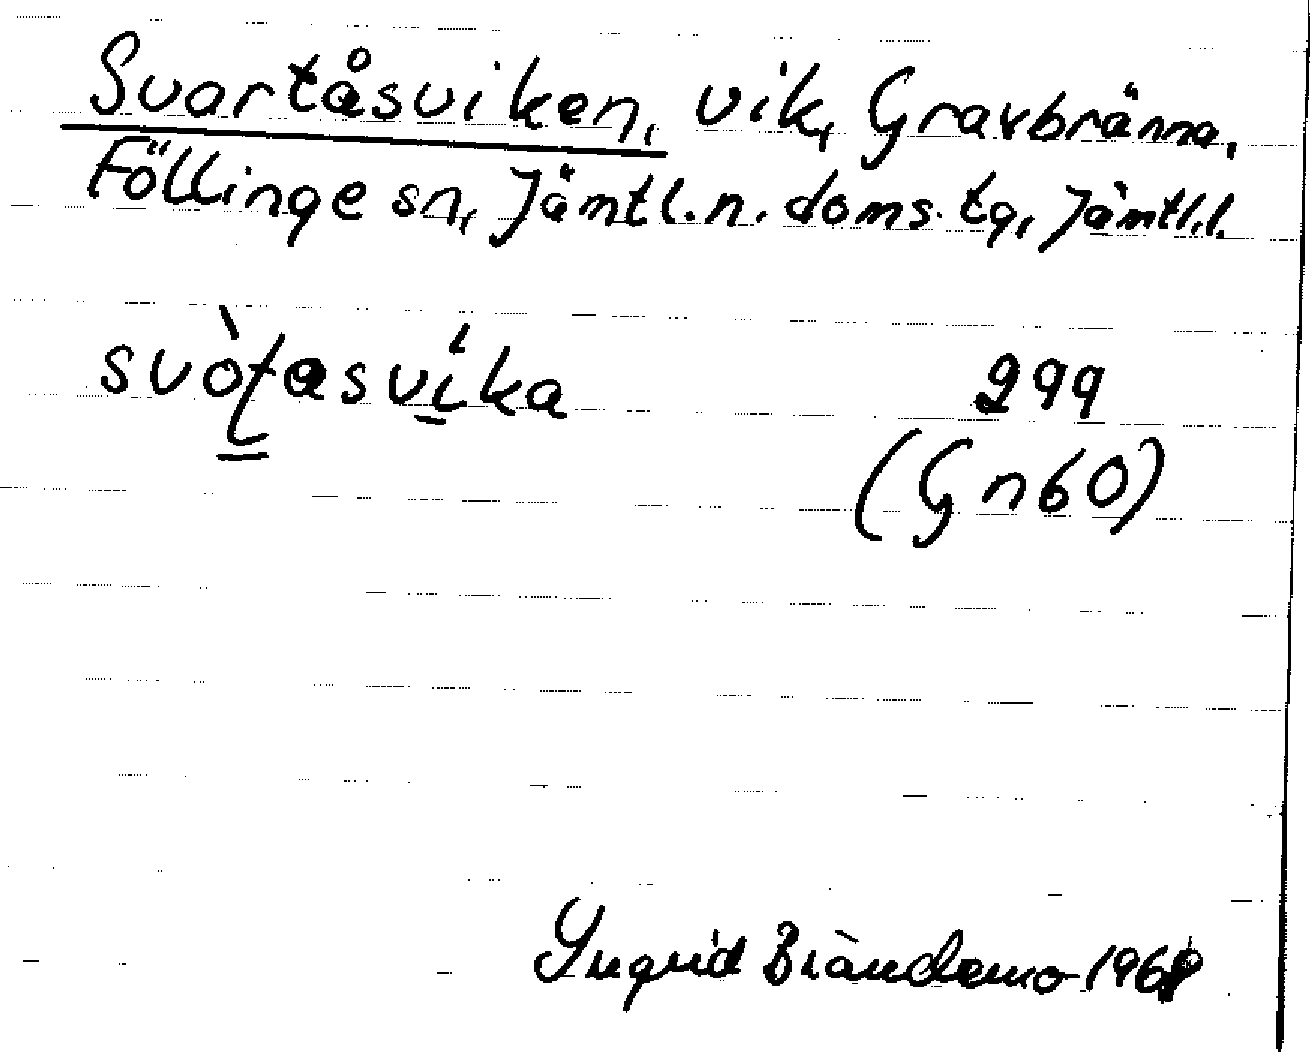 Svartåsviken, vik, Gravbränna,
Föllinge sn, Jämtl.n. doms.tg, Jämtl.l.
svòʈasvíka 299
(Gn60)
Yngrid Brändemo